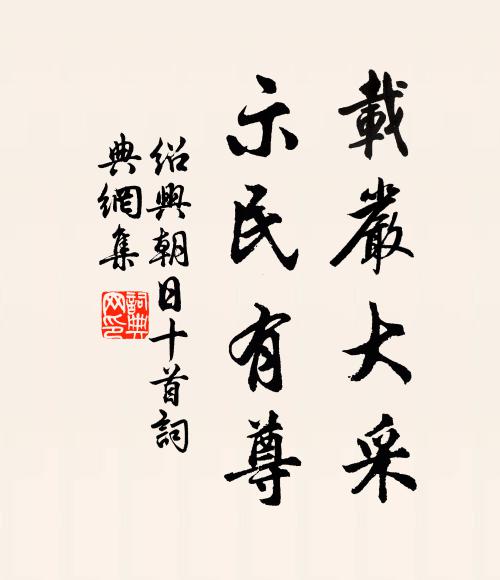 載嚴大采
示民有尊
紹興朝日十首詞
典網集
詞典
网印